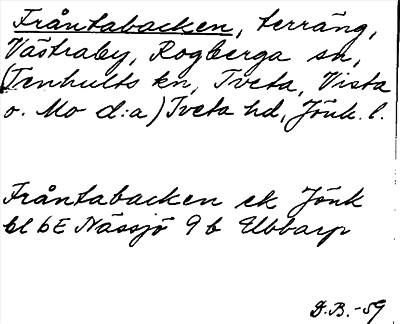 Fråntabacken, terräng,
Västraby, Rogberga sn,
(Tenhults kn, Tveta, Vista
o. Mo d:a) Tveta hd, Jönk. l.
Fråntabacken ek Jönk
bl 6E Nässjö 9b Ubbarp
D.B. -59